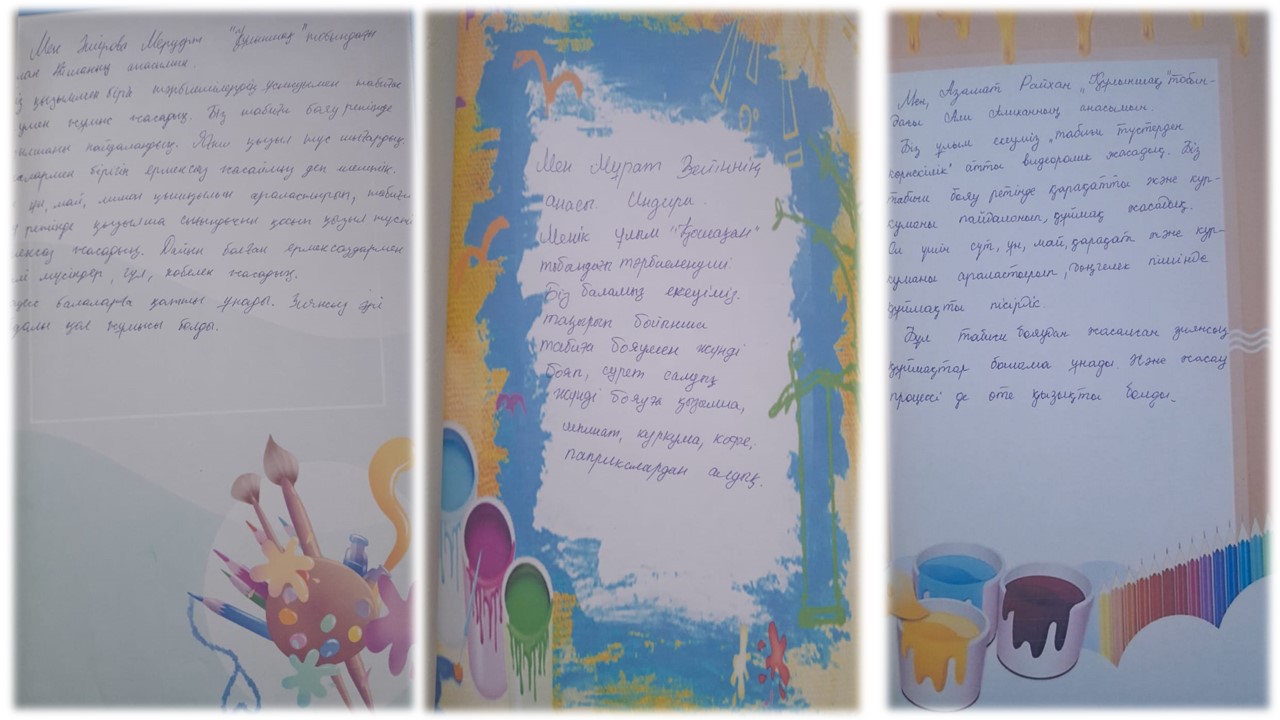 Мен Меруерт "Құлыншақ" тобындағы
анасымын.
қызыммен бірге тәрбиешіміздің ұсынуымен табиғи
жұмыс жасадық. Біз табиғи бояу ретінде
қызылшаны пайдаландық. Яғни қызыл түс шығардық.
бірігіп ермексаз жасайық деп шештік.
ұн, май, лимон қышқылын араластырып, табиғи
ретінде қызылша қосып қызыл түсті
жасадық. Дайын болған ермексаздармен
мүсіндер, гүл, көбелек жасадық.
балаларға қатты ұнады. Зиянсыз әрі
қол жұмысы болды.
Мен Мұрат Зейіннің
анасы Индира.
Менің ұлым "Қошақан"
тобындағы тәрбиеленуші
Біз баламыз екеуіміз.
тақырып бойынша
табиғи бояумен жүнді
бояп, сурет салдық
Жүнді бояуға қызылша,
шпинат, куркума, кофе,
паприкалардан алдық.
Мен, Азамат Райхан "Құлыншақ" тобын-
дағы Али Алиханның анасымын.
Біз ұлым екеуміз "табиғи түстерден
көрнекілік" атты видеоролик жасадық. Біз
табиғи бояу ретінде қарақатты және кур-
куманы пайдаланып, құймақ жасадық.
Ол үшін сүт, ұн, май, қарақат және кур-
куманы араластырып, дөңгелек пішінде
құймақты пісірдік.
Бұл табиғи бояудан жасалған зиянсыз
құймақтар балама ұнады. Және жасау
процессі де өте қызықты болды.